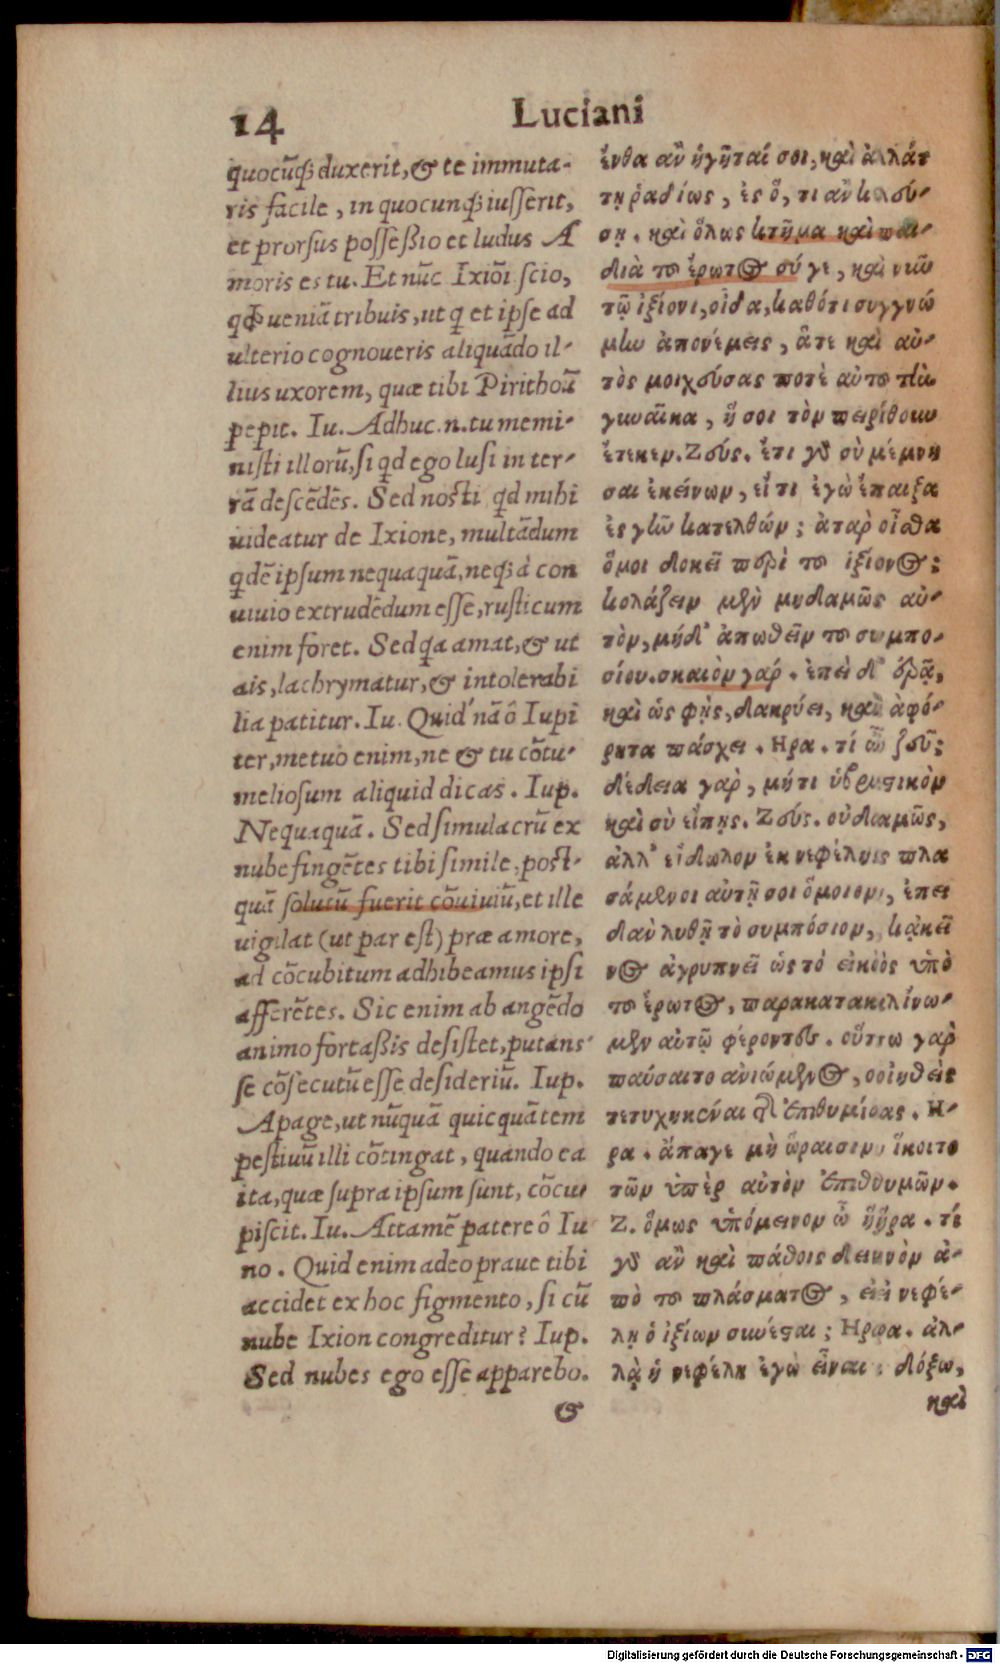 14 Luciani
quocũq; duxerit, & te immuta-
ris facile, in quocunq; iusserit,
et prorsus possessio et ludus A
moris es tu. Et nũc Ixiõi scio,
qđ ueniã tribuis, ut q et ipse ad
ulterio cognoueris aliquãdo il-
lius uxorem, quæ tibi Pirithoũ
pepit. Iu. Adhuc.n.tu memi-
nisti illorũ, si qd ego lusi in ter-
rã descẽdẽs. Sed nosti qd mihi
uideatur de Ixione, multãdum
qdẽ ipsum nequaquã, neq; à con
uiuio extrudẽdum esse, rusticum
enim foret. Sed qa amat, & ut
ais, lachrymatur, & intolerabi
lia patitur. Iu. Quid nã ô Iupi
ter, metuo enim, ne & tu cõtu-
meliosum aliquid dicas. Iup.
Nequaquã. Sed simulacrũ ex
nube fingẽtes tibi simile, post-
quã solutũ fuerit cõuiuiũ, et ille
uigilat (ut par est) præ amore,
ad cõcubitum adhibeamus ipsi
afferẽtes. Sic enim ab angẽdo
animo fortassis desistet, putans
se cõsecutũ esse desideriũ. Iup.
Apage, ut nũquã quicquã tem
pestiuũ illi cõtingat, quando ea
ita, quæ supra ipsum sunt, cõcu
piscit. Iu. Attamẽ patere ô Iu
no. Quid enim adeo praue tibi
accidet ex hoc figmento, si cũ
nube Ixion congreditur? Iup.
Sed nubes ego esse apparebo.
&
ἔνθα ἂν ἡγῆταί σοι, καὶ ἀλλάτ
τῃ ῥαδίως, ἐς ὅ, τι ἂν κελεύ-
σῃ. καὶ ὅλως κτῆμα καὶ παι-
διὰ τοῦ ἔρωτος σύ γε, καὶ νῦν
τῷ ἰξίονι, οἶδα, καθότι συγγνώ
μην ἀπονέμεις, ἅτε καὶ αὐ-
τὸς μοιχεύσας ποτὲ αὐτοῦ τὴν
γυναῖκα, ἥ σοι τὸν πειρίθουν
ἔτεκεν. Ζεύς. ἔτι γὰρ σὺ μέμνη
σαι ἐκείνων, εἴ τι ἐγὼ ἔπαιξα
ἐς γῆν κατελθών; ἀτὰρ οἶσθα
ὅ μοι δοκεῖ περὶ τοῦ ἰξίονος;
κολάζειν μὲν μηδαμῶς αὐ-
τὸν, μήδ' ἀπωθεῖν τοῦ συμπο-
σίου. σκαιὸν γάρ. ἐπεὶ δ' ἐρᾷ,
καὶ ὡς φῂς, δακρύει, καὶ ἀφό-
ρητα πάσχει. Ηρα. τί ὦ ζεῦ;
δέδεια γὰρ, μήτι ὑβριστικὸν
καὶ σὺ εἴπῃς. Ζεύς. οὐδαμῶς,
ἀλλ' εἴδωλον ἐκ νεφέλης πλα
σάμενοι αὐτῇ σοι ὅμοιον, ἐπει
δὰν λυθῇ τὸ συμπόσιον, κἀκεῖ
νος ἀγρυπνεῖ ὡς τό εἰκὸς ὑπὸ
τοῦ ἔρωτος, παρακατακλίνω-
μεν αὐτῷ φέροντες. οὕτω γὰρ
παύσαιτο ἀνιώμενος, οἰηθεὶς
τετυχηκέναι τῆς ἐπιθυμίας. Η-
ρα. ἄπαγε μὴ ὥραισιν ἵκοιτο
τῶν ὑπὲρ αὐτὸν ἐπιθυμῶν.
Ζ. ὅμως ὑπόμεινον ὦ ἥρα. τί
γὰρ ἂν καὶ πάθοις δεινὸν ἀ-
πὸ τοῦ πλάσματος, εἰ νεφέ-
λῃ ὁ ἰξίων συνέσται; Ηρα. ἀλ-
λὰ ἡ νεφέλη ἐγὼ εἶναι δόξω,
καὶ
Digitalisierung gefördert durch die Deutsche Forschungsgemeinschaft - DFG